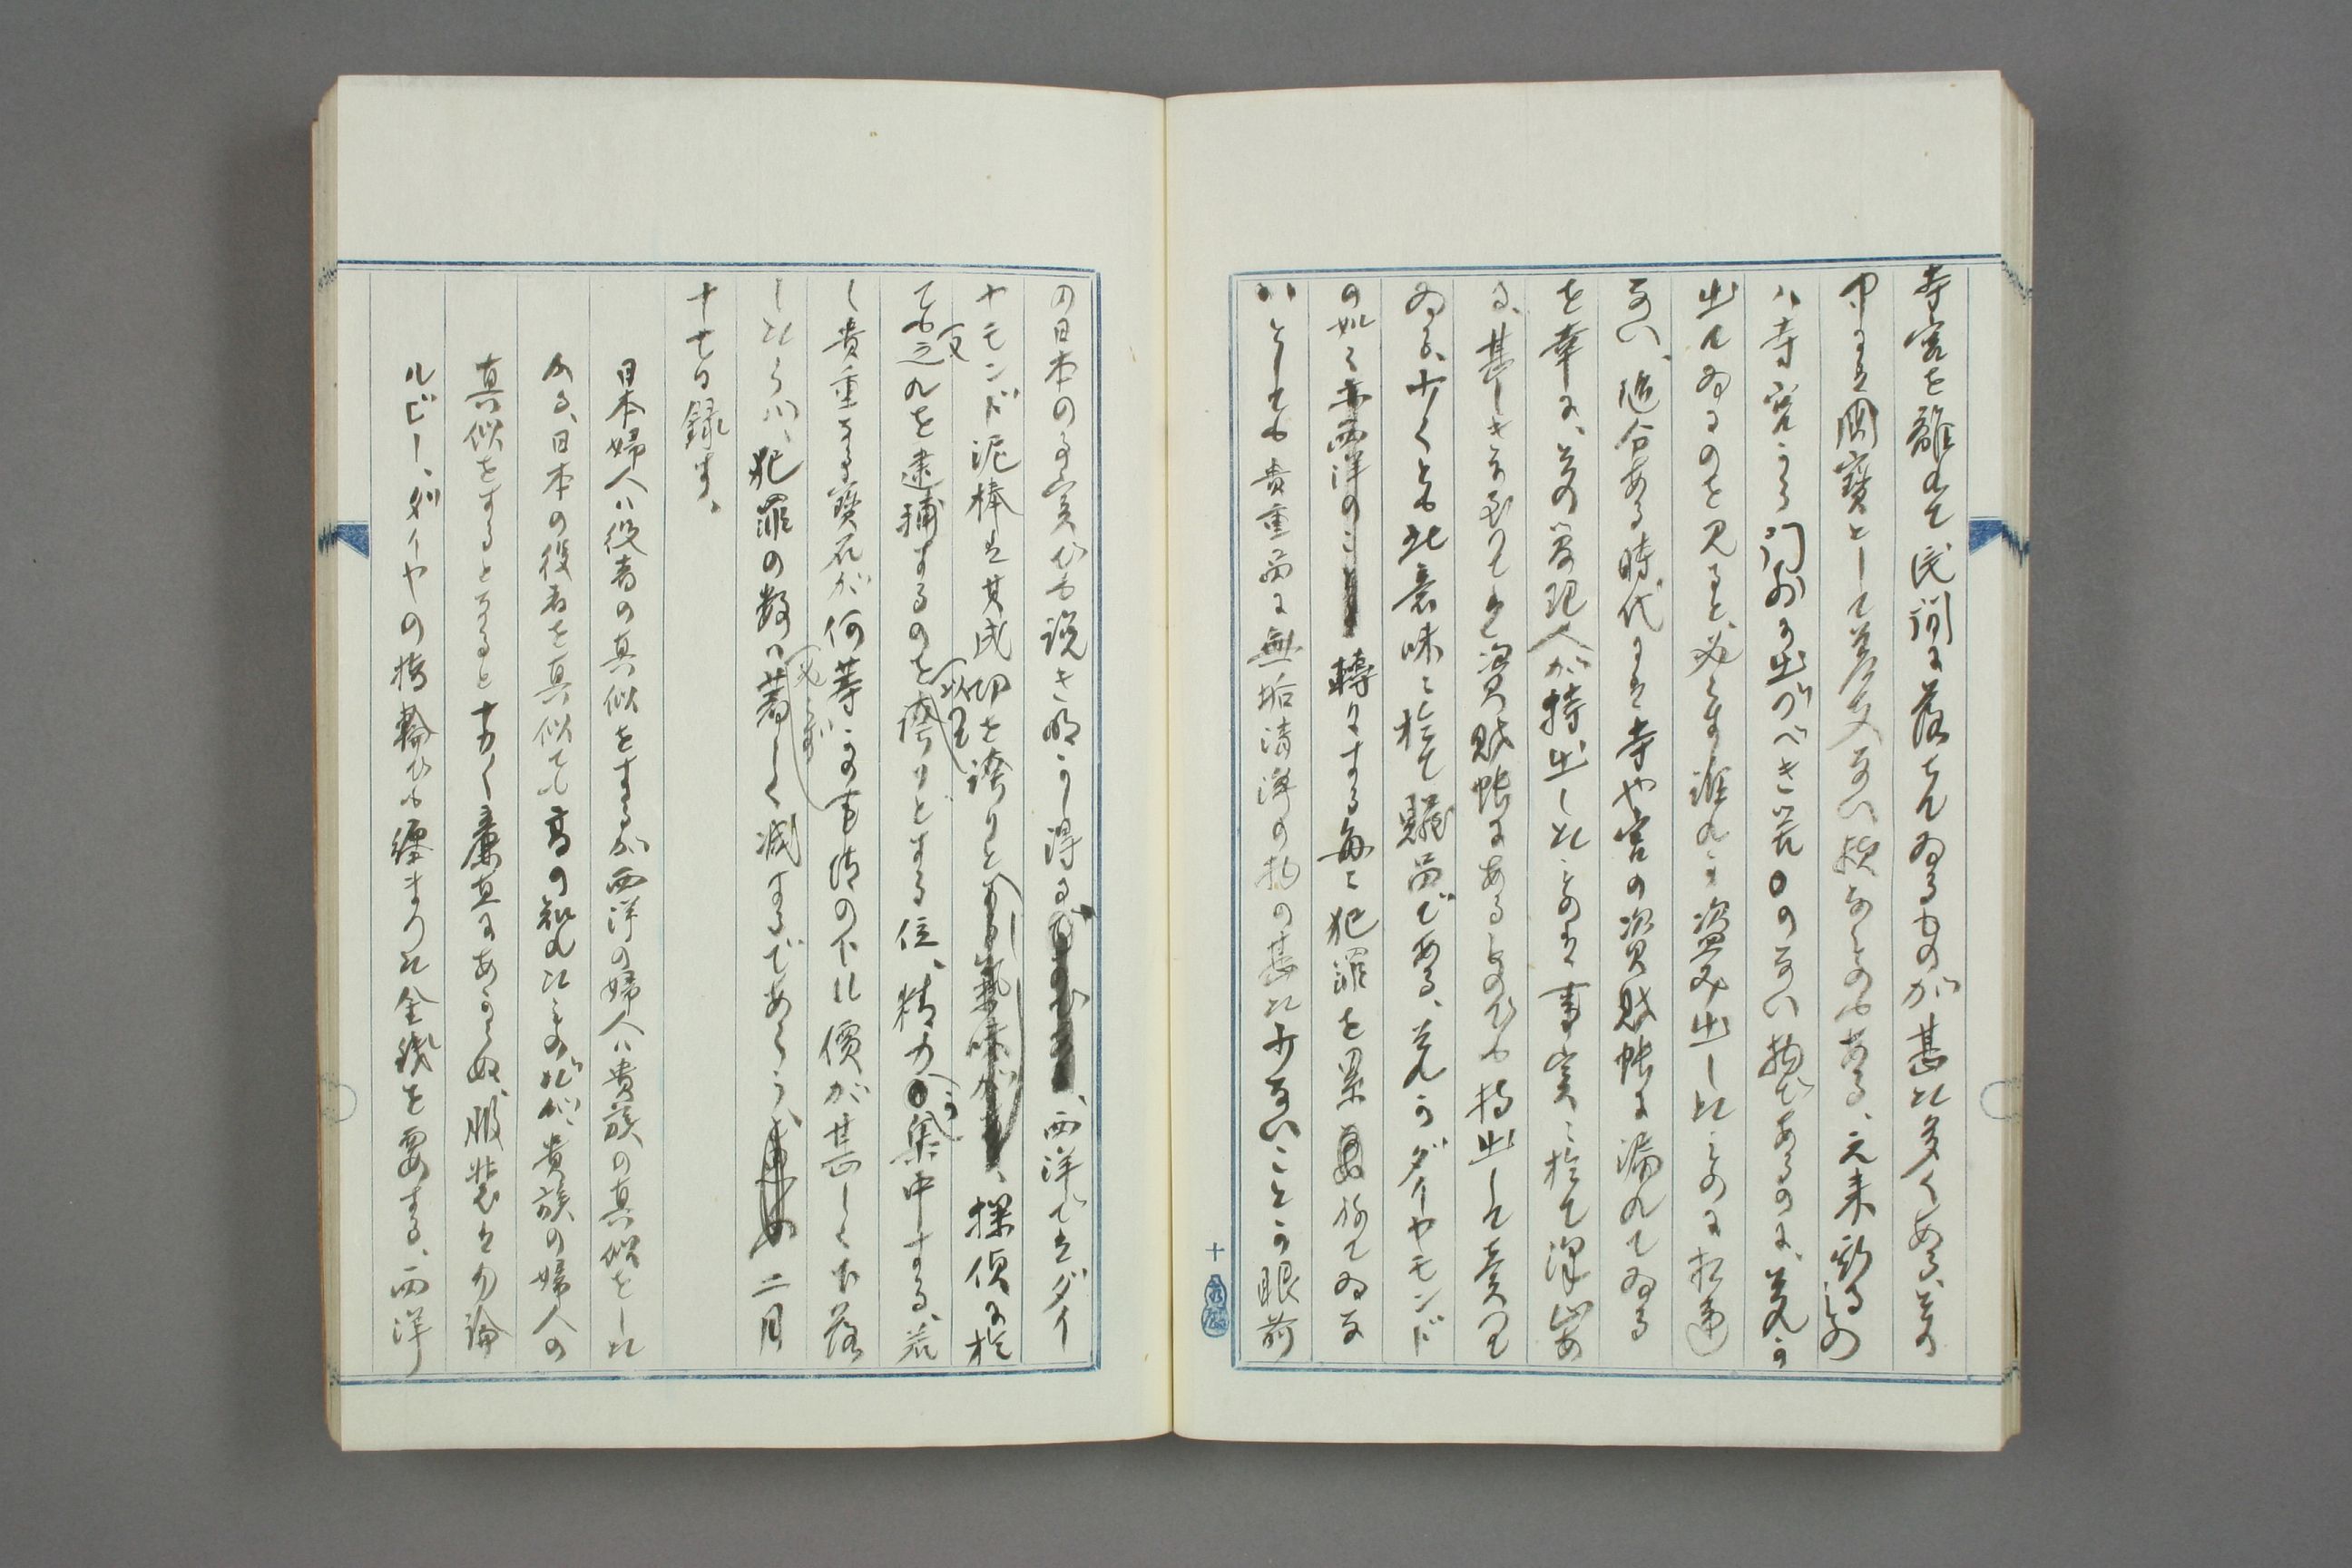 寺宮を離れて民間に落ちてゐるものが甚だ多くある、其の
中には国寶として差支ない様なものもある、元来斯るもの
ハ寺宮から門外に出づべき筈のない物であるのに、其れが
出てゐるのを見ると、必らず誰れか盗み出したものに相違
ない、随分ある時代には寺や宮の資財帳に漏れてゐる
を幸に、其の管理人が持出したものは事実に於て澤山あ
る、甚しきに至りては資財帳にあるものでも持出して売つて
ゐる、少くとも此意味に於て贓品である、其れがダイヤモンド
の如く轉々する毎に犯罪を累ねてゐな
いとしても貴重品に無垢清浄の物の甚だ少ないことが眼前
の日本の事実でも説き明かし得る、西洋ではダイ
ヤモンド泥棒は其成功を誇りとし、探偵に於
ても又之れを逮捕するのを誇りとする位、精力が集中する、若
し貴重なる寶石が何等かの事情の下に價が甚しく下落
したらバ、犯罪の数ハ必らず著しく減するであらう、二月
十七日録す。
日本婦人ハ役者の真似をするが西洋の婦人ハ貴族の真似をした
がる、日本の役者を真似ても高の知れたものだが、貴族の婦人の
真似をするとなると十分く廉直にあらぬ、服装は勿論
ルビー、ダイヤの指輪でも纏まつた金銭を要する、西洋
十